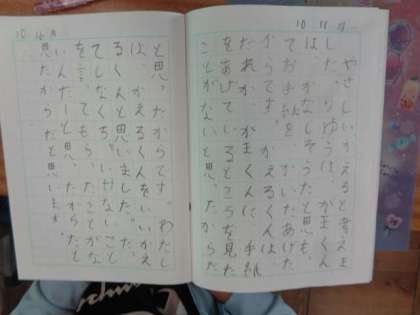 やさしいかえると考えま
した。りゆうは、がまくん
は、かなしそうだと思も、
てお手紙を、かいたあげた
からです。かえるくんは
だれか、がまくんに手紙
をあげているところを見た
ことがないと思、たからだ
と思、たからです。わたし
は、かえるくんをいいかえ
るくんと思いました。だ、
てしなくちゃいけないこと
を言、てもら、たことがな
いんだーと思、たからだと
思たからだと思います。